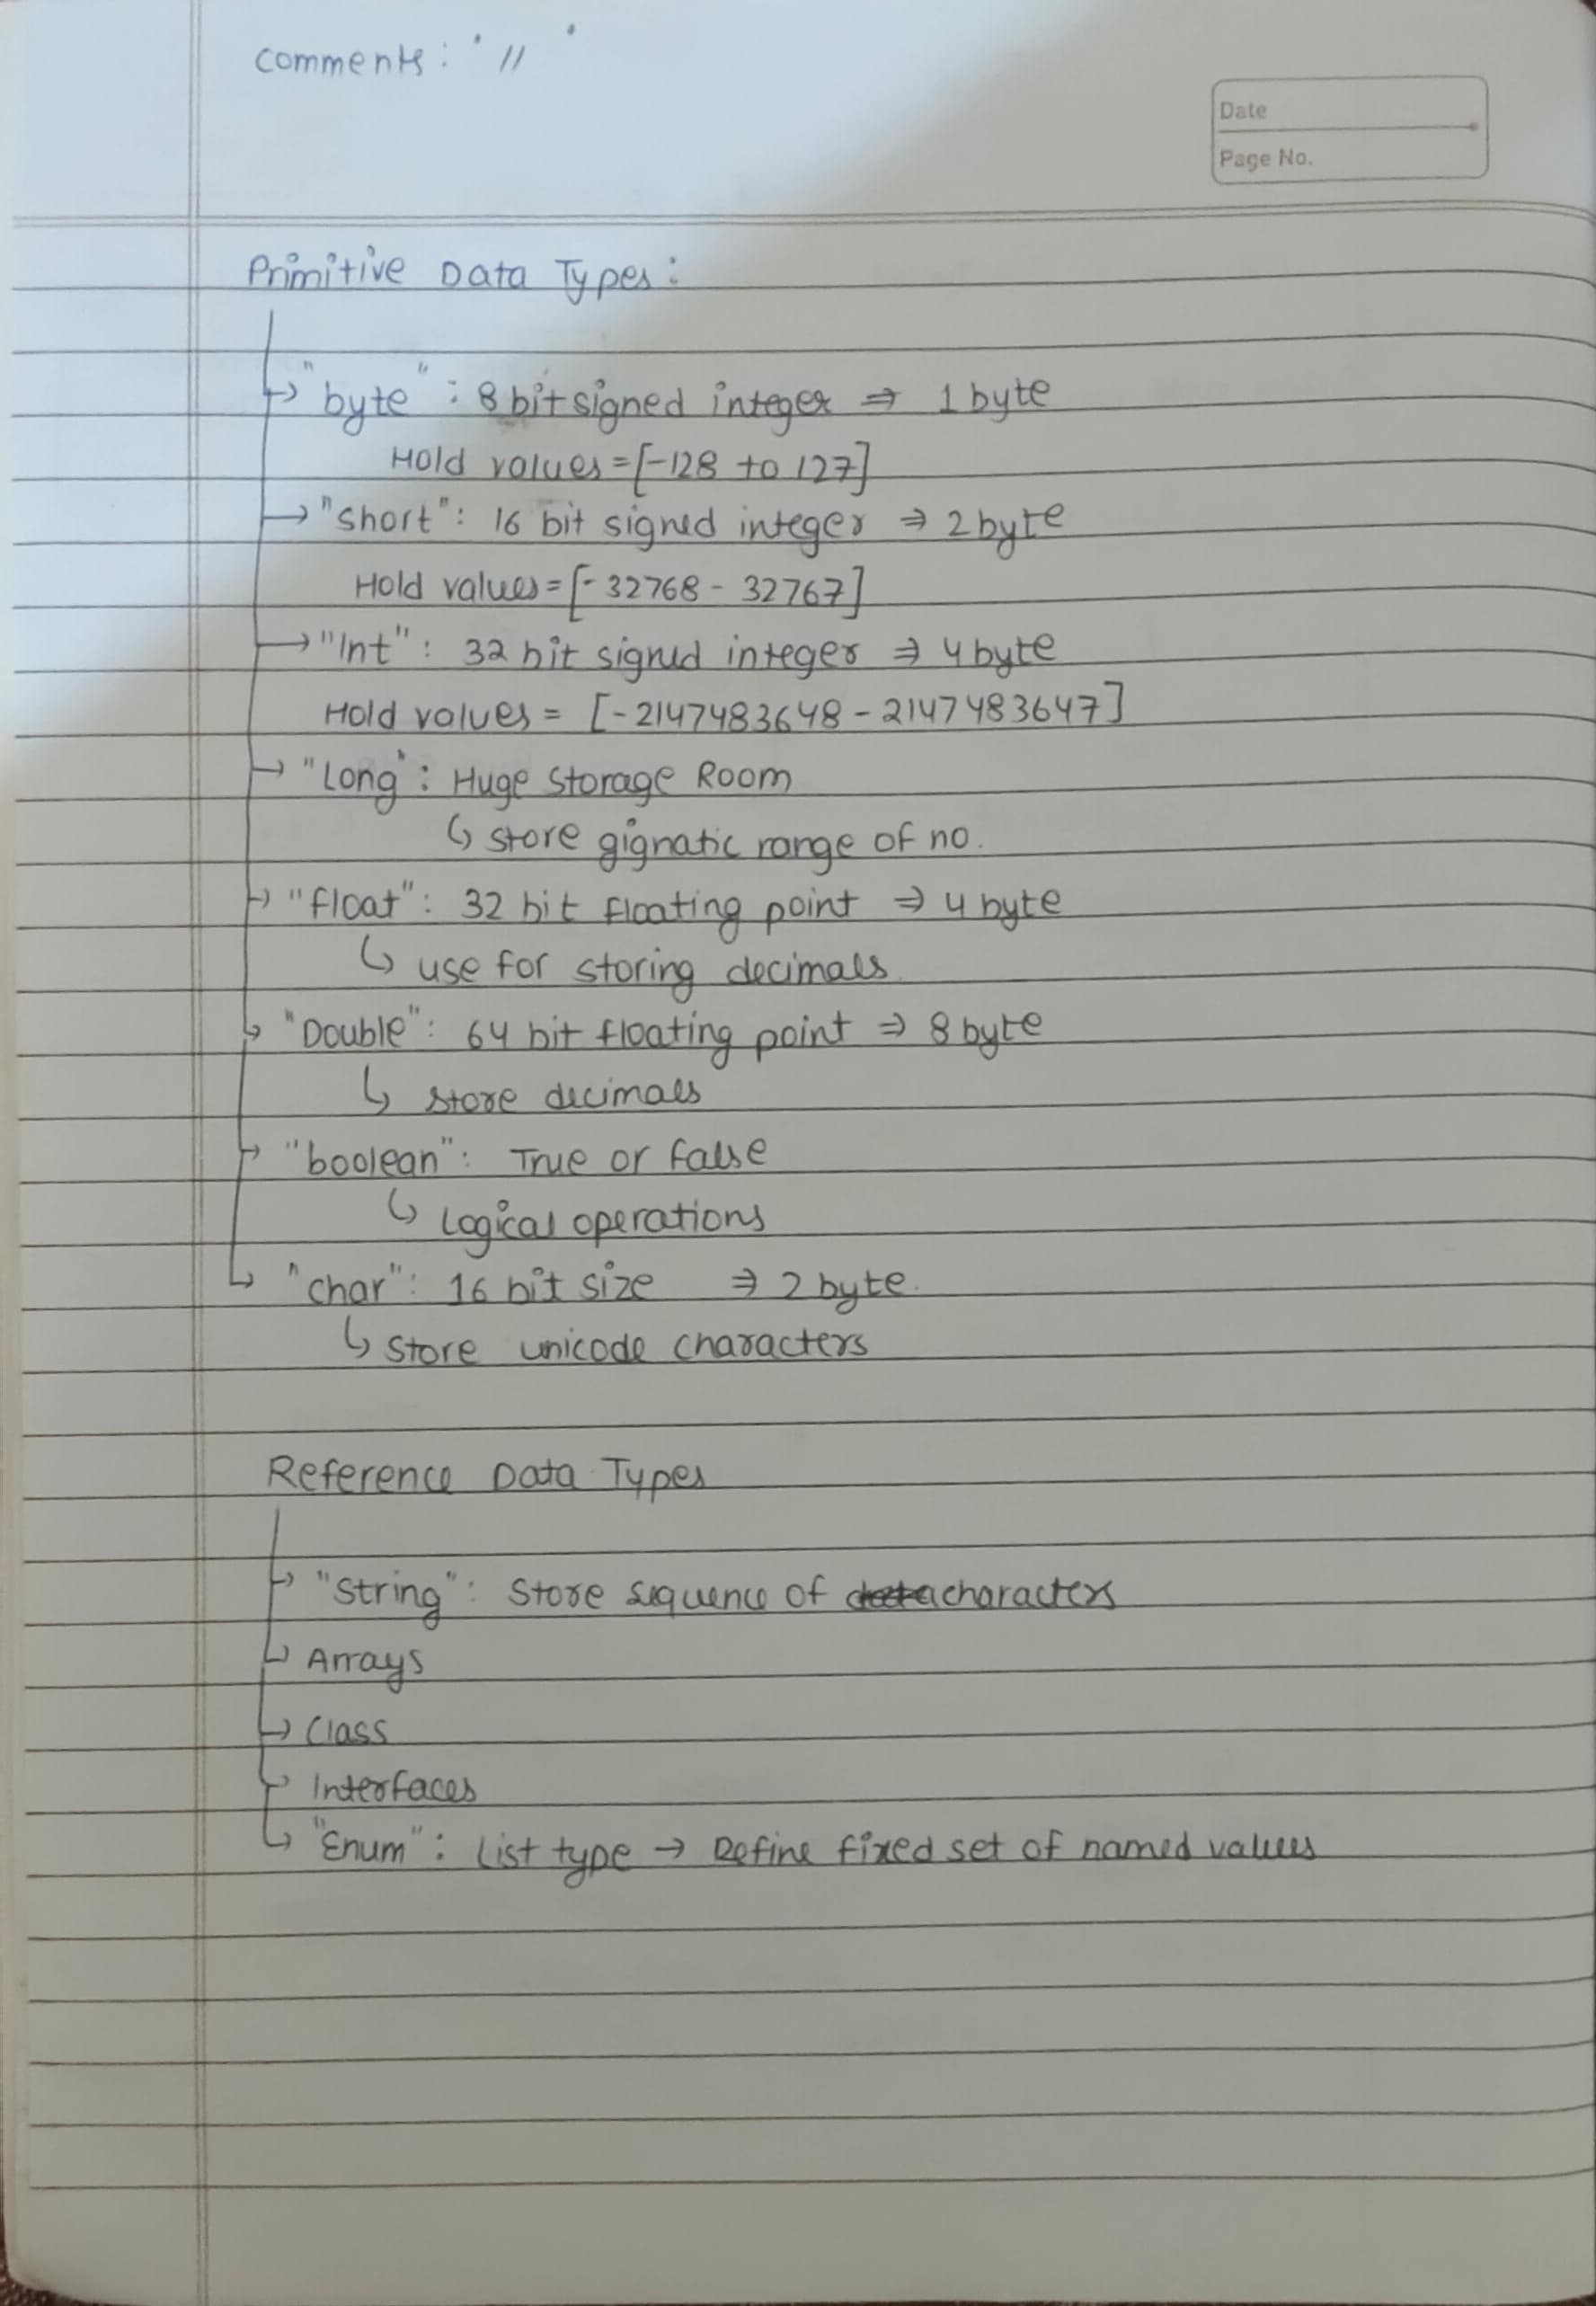 comments: ' // '
Date
Page No.
Primitive Data Types:
→ "byte" : 8 bit signed integer ⇒ 1 byte
Hold values = [-128 to 127]
→ "short" : 16 bit signed integer ⇒ 2 byte
Hold values = [-32768 - 32767]
→ "Int" : 32 bit signed integer ⇒ 4 byte
Hold values = [-2147483648 - 2147483647]
→ "Long" : Huge Storage Room
↳ store gignatic range of no.
→ "float" : 32 bit floating point ⇒ 4 byte
↳ use for storing decimals
↳ "Double" : 64 bit floating point ⇒ 8 byte
↳ store decimals
→ "boolean" : True or false
↳ Logical operations
↳ "char" : 16 bit size ⇒ 2 byte.
↳ Store unicode characters
Reference Data Types
→ "String" : Store sequence of characters
↳ Arrays
→ Class
→ Interfaces
↳ "Enum" : List type → Define fixed set of named values